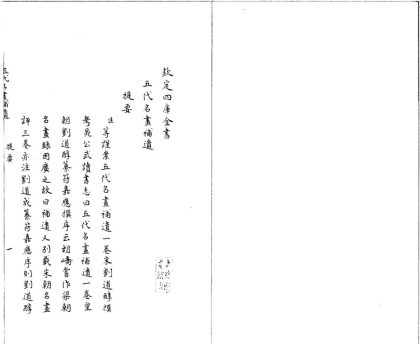 欽定四庫全書
五代名畫補遺
提要
臣等謹案五代名畫補遺一卷宋劉道醇撰
考晁公武讀書志曰五代名畫補遺一卷皇
朝劉道醇纂符嘉應撰序云胡嶠嘗作梁朝
名畫錄因廣之故曰補遺又別載宋朝名畫
評三卷亦注劉道成纂符嘉應序則劉道醇
五代名畫補遺
提要
一